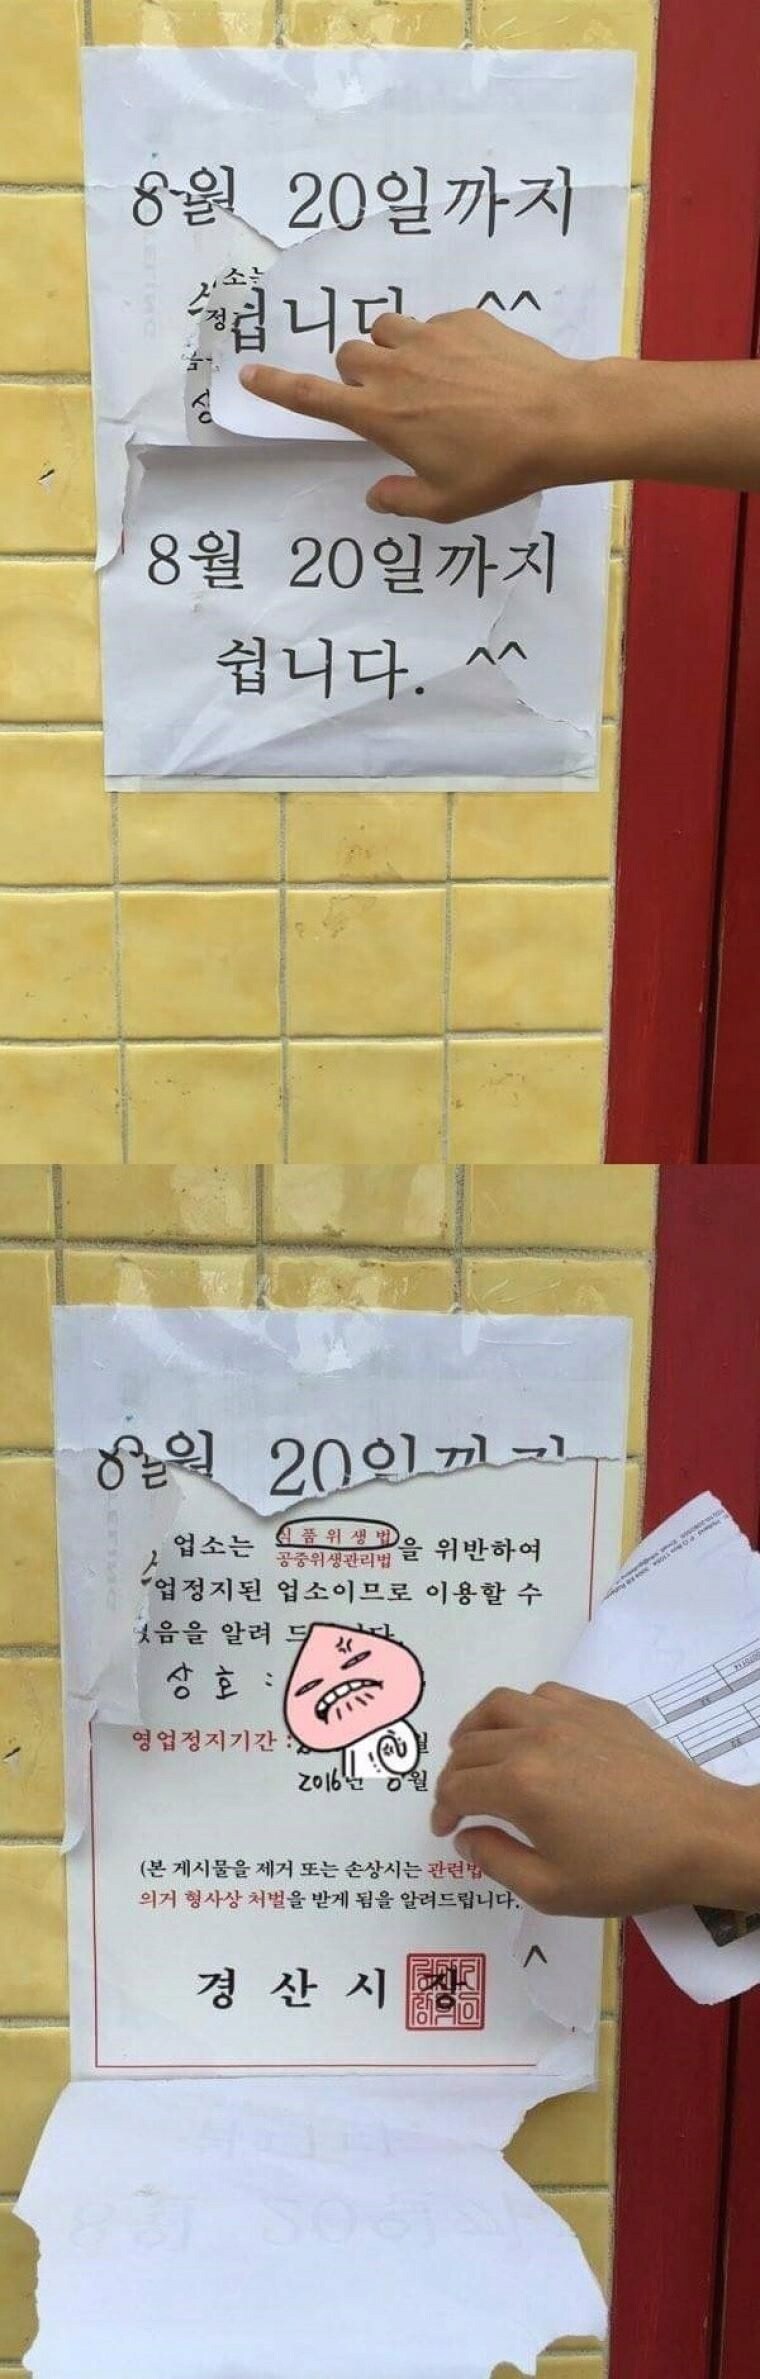 8월 20일까지
쉽니다. ^^
8월 20일까지
쉽니다. ^^
8월 20일까지
업소는 식품위생법
공중위생관리법 을 위반하여
업정지된 업소이므로 이용할 수
음을 알려 드
상호 :
영업정지기간 :
2016년 8월
(본 게시물을 제거 또는 손상시는 관련법
의거 형사상 처벌을 받게 됨을 알려드립니다.
^
경산시장